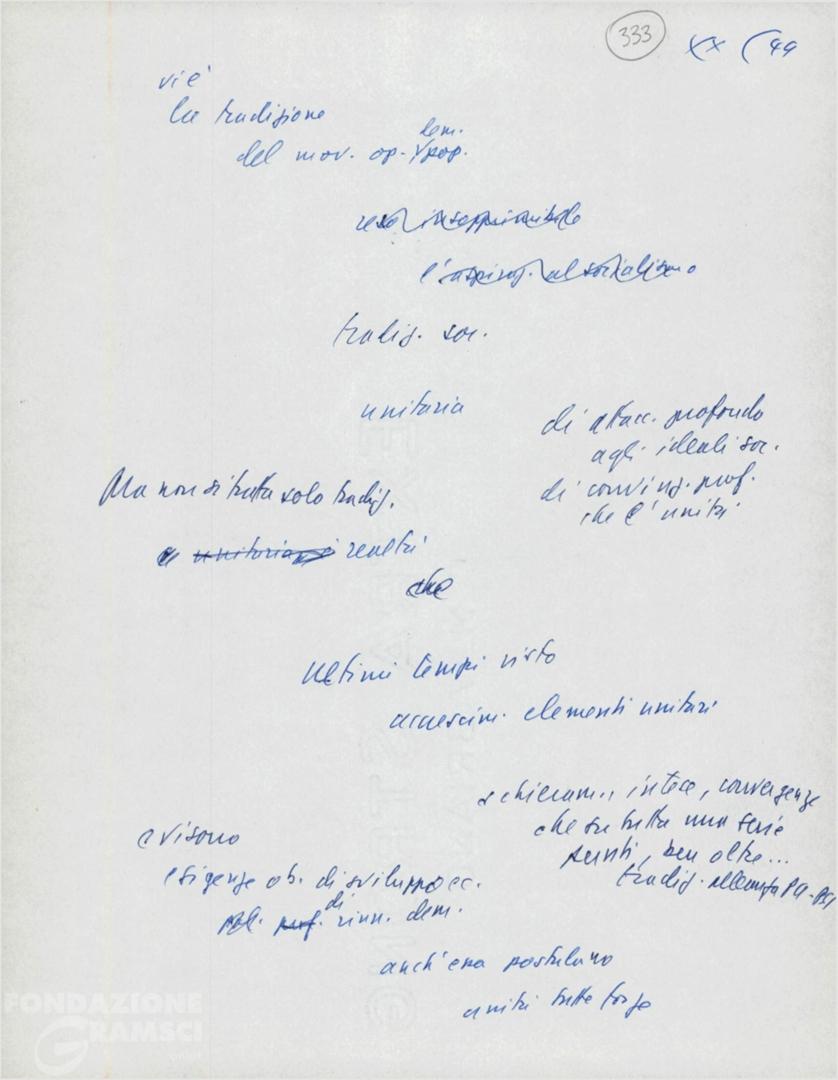 333
XX (44
vi è
la tradizione
del mov. op. dem. pop.
resa insopprimibile
l'aspiraz. al socialismo
tradiz. soc.
unitaria
di attacc. profondo
agli ideali soc.
di convinz. prof.
che l'unità
Ma non si tratta solo tradiz.
unitaria realtà
che
Ultimi tempi visto
accrescim. elementi unitari
schieram., intese, convergenze
che su tutta una serie
punti, ben oltre...
tradiz. alleanza PCI-PSI
e vi sono
esigenze ob. di sviluppo ec.
di rinn. dem.
anch'essa postulano
unità tutte forze
FONDAZIONE
GRAMSCI